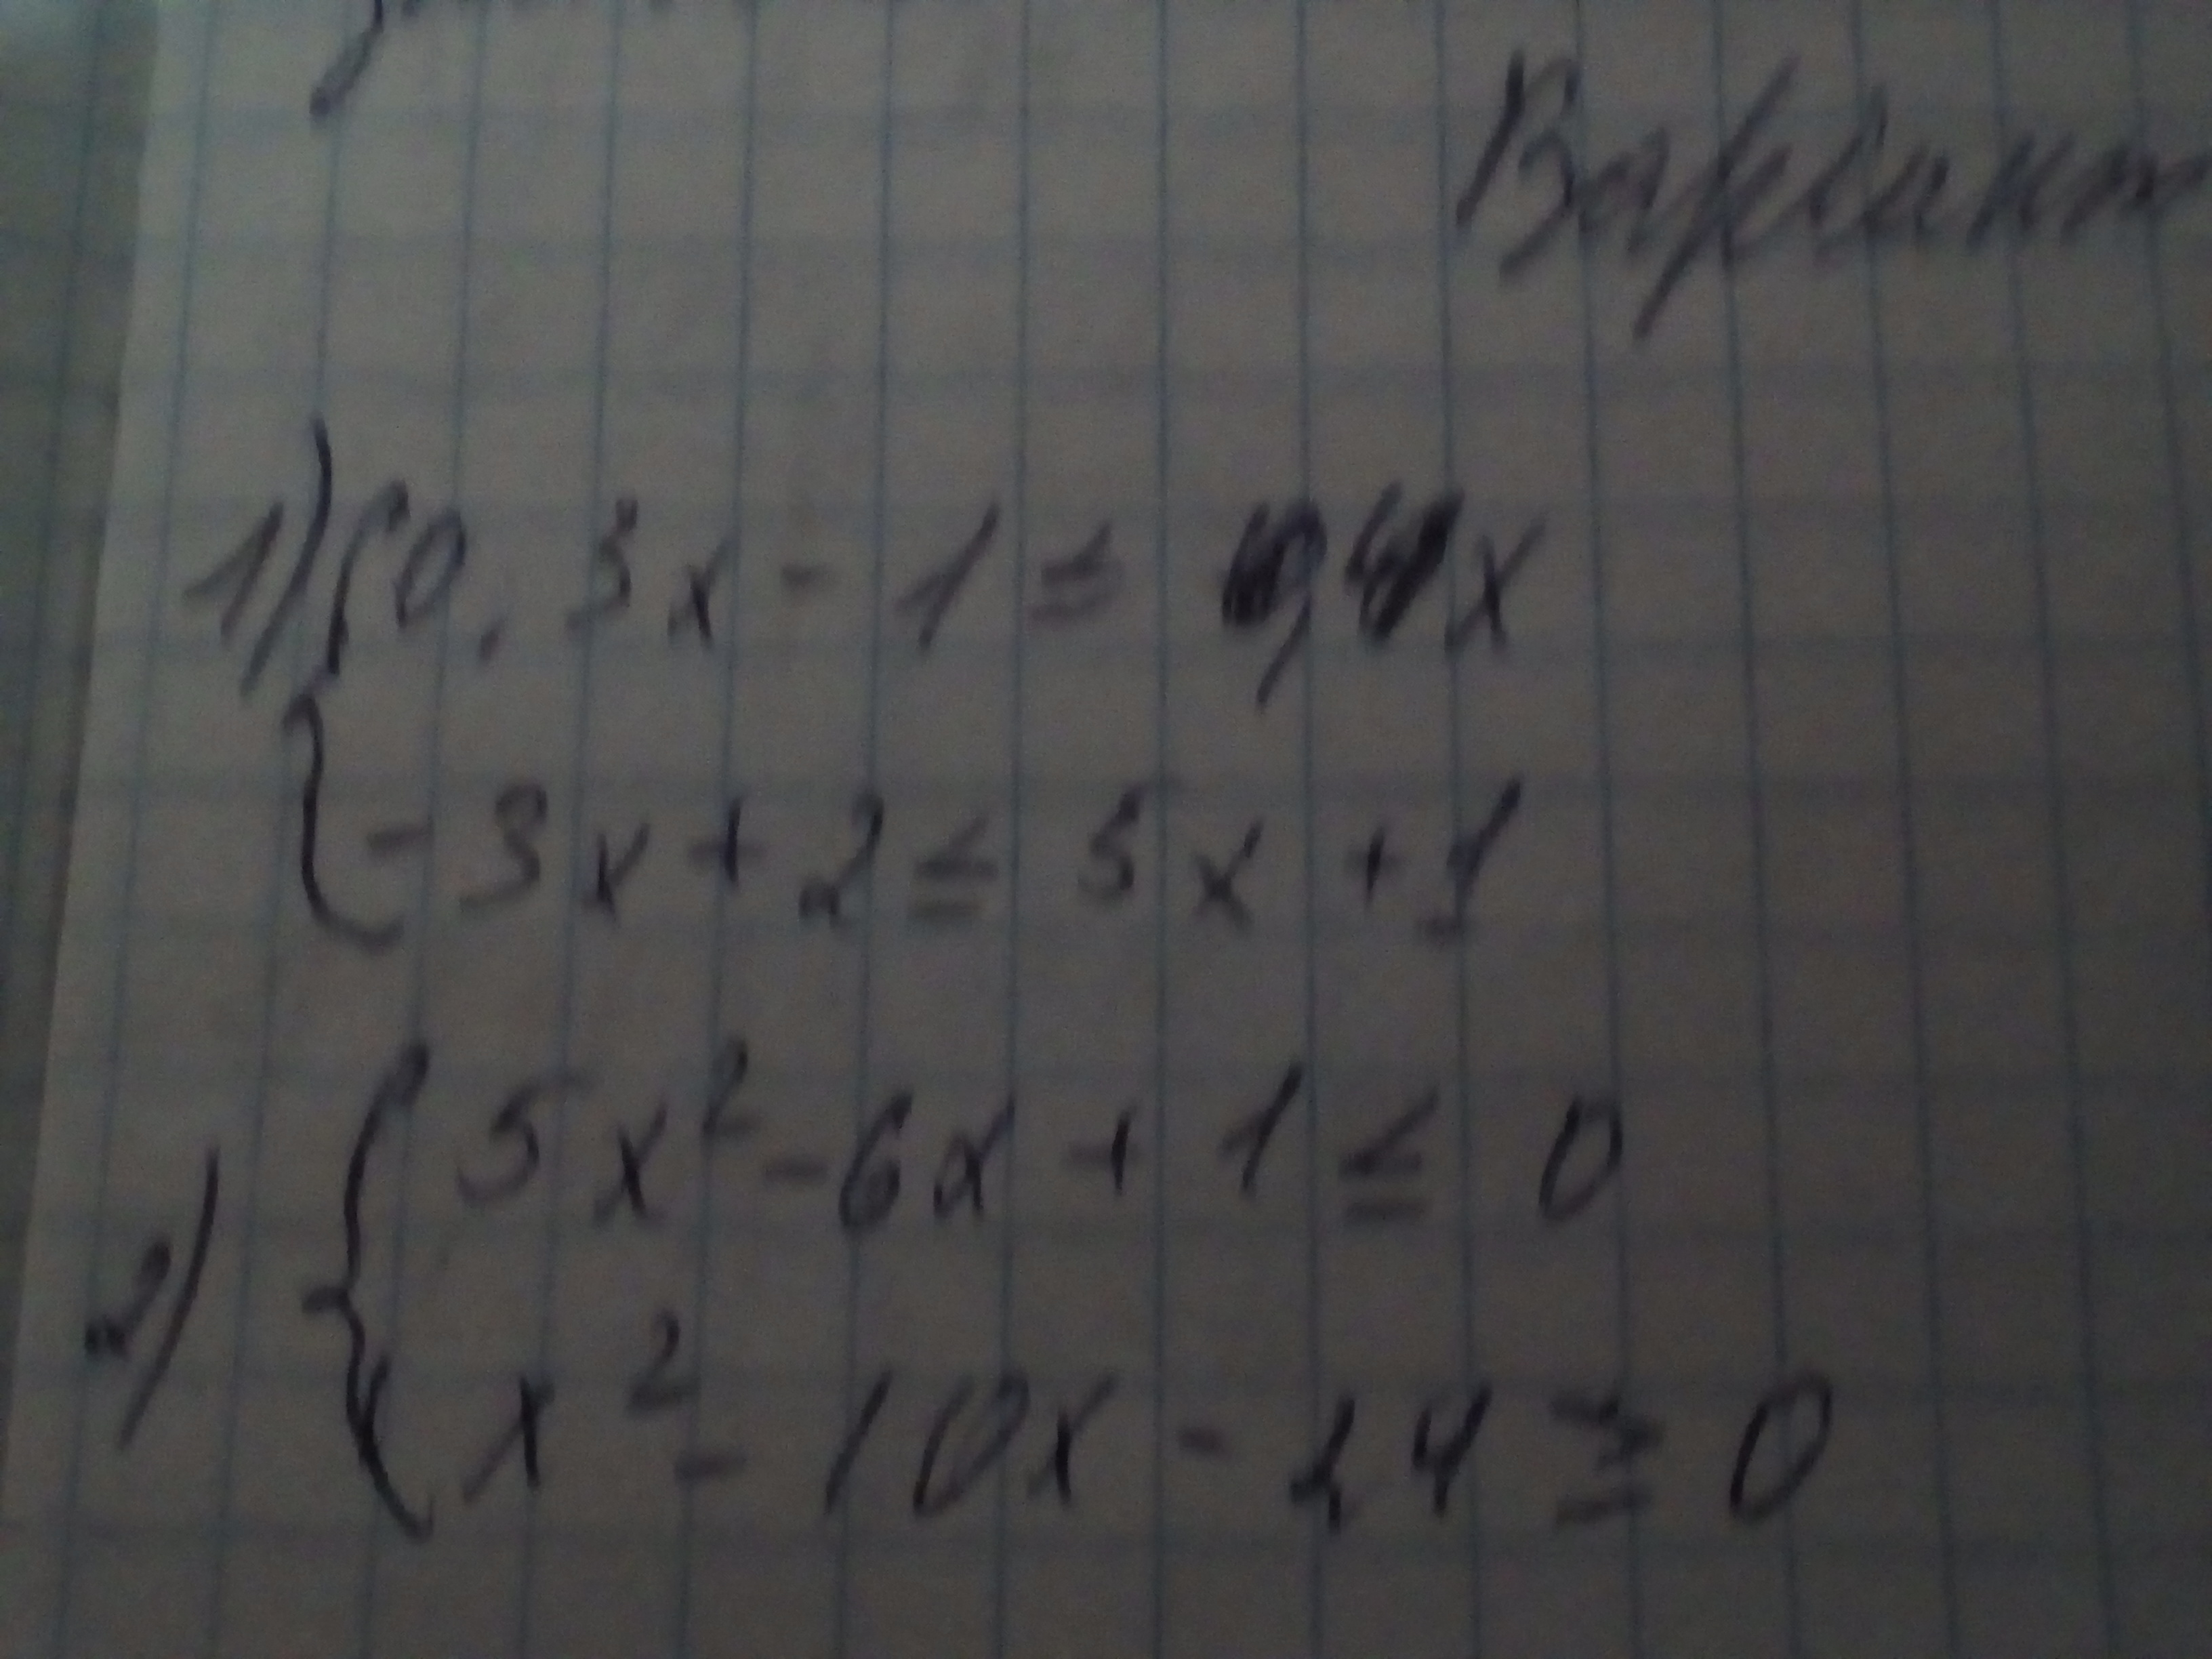 Вариант
1) { 0,3x - 1 ≤ 0,4x
-3x + 2 ≤ 5x + 1
2) { 5x² - 6x + 1 ≤ 0
x² - 10x - 24 ≥ 0